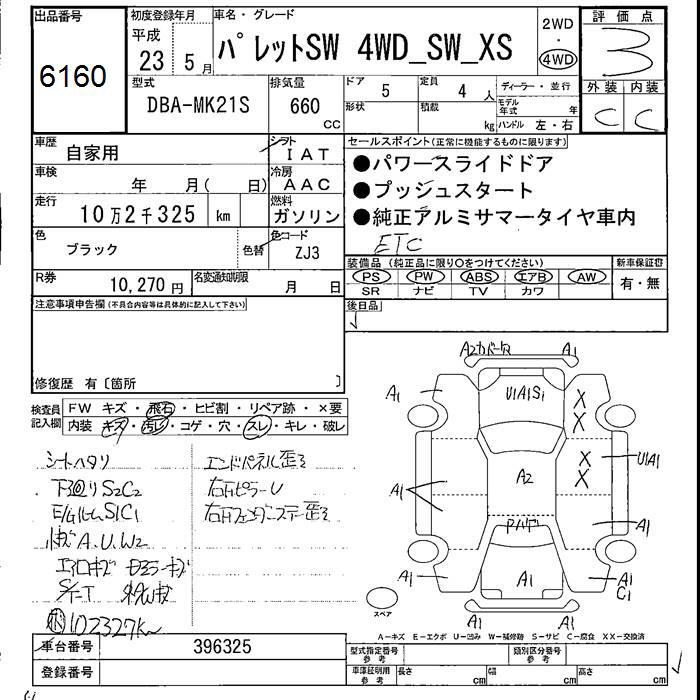 出品番号
6160
初度登録年月
平成
23 5 月
車名・グレード
パレットSW 4WD_SW_XS
2WD
・
4WD
評価点
3
外装 内装
C C
型式
DBA-MK21S
排気量
660
cc
ドア
5
定員
4 人
形状
積載
kg
ディーラー・並行
モデル年式 年
ハンドル 左・右
車歴
自家用
シフト
IAT
車検
年 月( 日)
冷房
AAC
走行
10万2千325 km
燃料
ガソリン
色
ブラック
色替
色コード
ZJ3
R券
10,270 円
名変通知期限
月 日
セールスポイント(正常に機能するものに限ります)
●パワースライドドア
●プッシュスタート
●純正アルミサマータイヤ車内
ETC
装備品(純正品に限り○をつけてください)
PS PW ABS エアB AW
SR ナビ TV カワ
新車保証書
有・無
後日品
注意事項申告欄(不具合内容等は具体的に記入して下さい)
修復歴 有〔箇所 〕
検査員
記入欄
FW キズ・飛石・ヒビ割・リペア跡・×要
内装 キズ・汚レ・コゲ・穴・スレ・キレ・破レ
シートヘタリ
下廻りS2C2
E/GルームS1C1
A.U.W2
エンドパネル歪ミ
右ピラーU
102327km
A2 A1
A1
U1A1S1
X
X
X
X
U1A1
A2
A1
A1
A1
A1
A1
C1
A1 A1
スペア
A-キズ E-エクボ U-凹み W-補修跡 S-サビ C-腐食 XX-交換済
車台番号
396325
登録番号
型式指定番号
参考
類別区分番号
参考
車庫証明用
参考
長さ cm
幅 cm
高さ cm